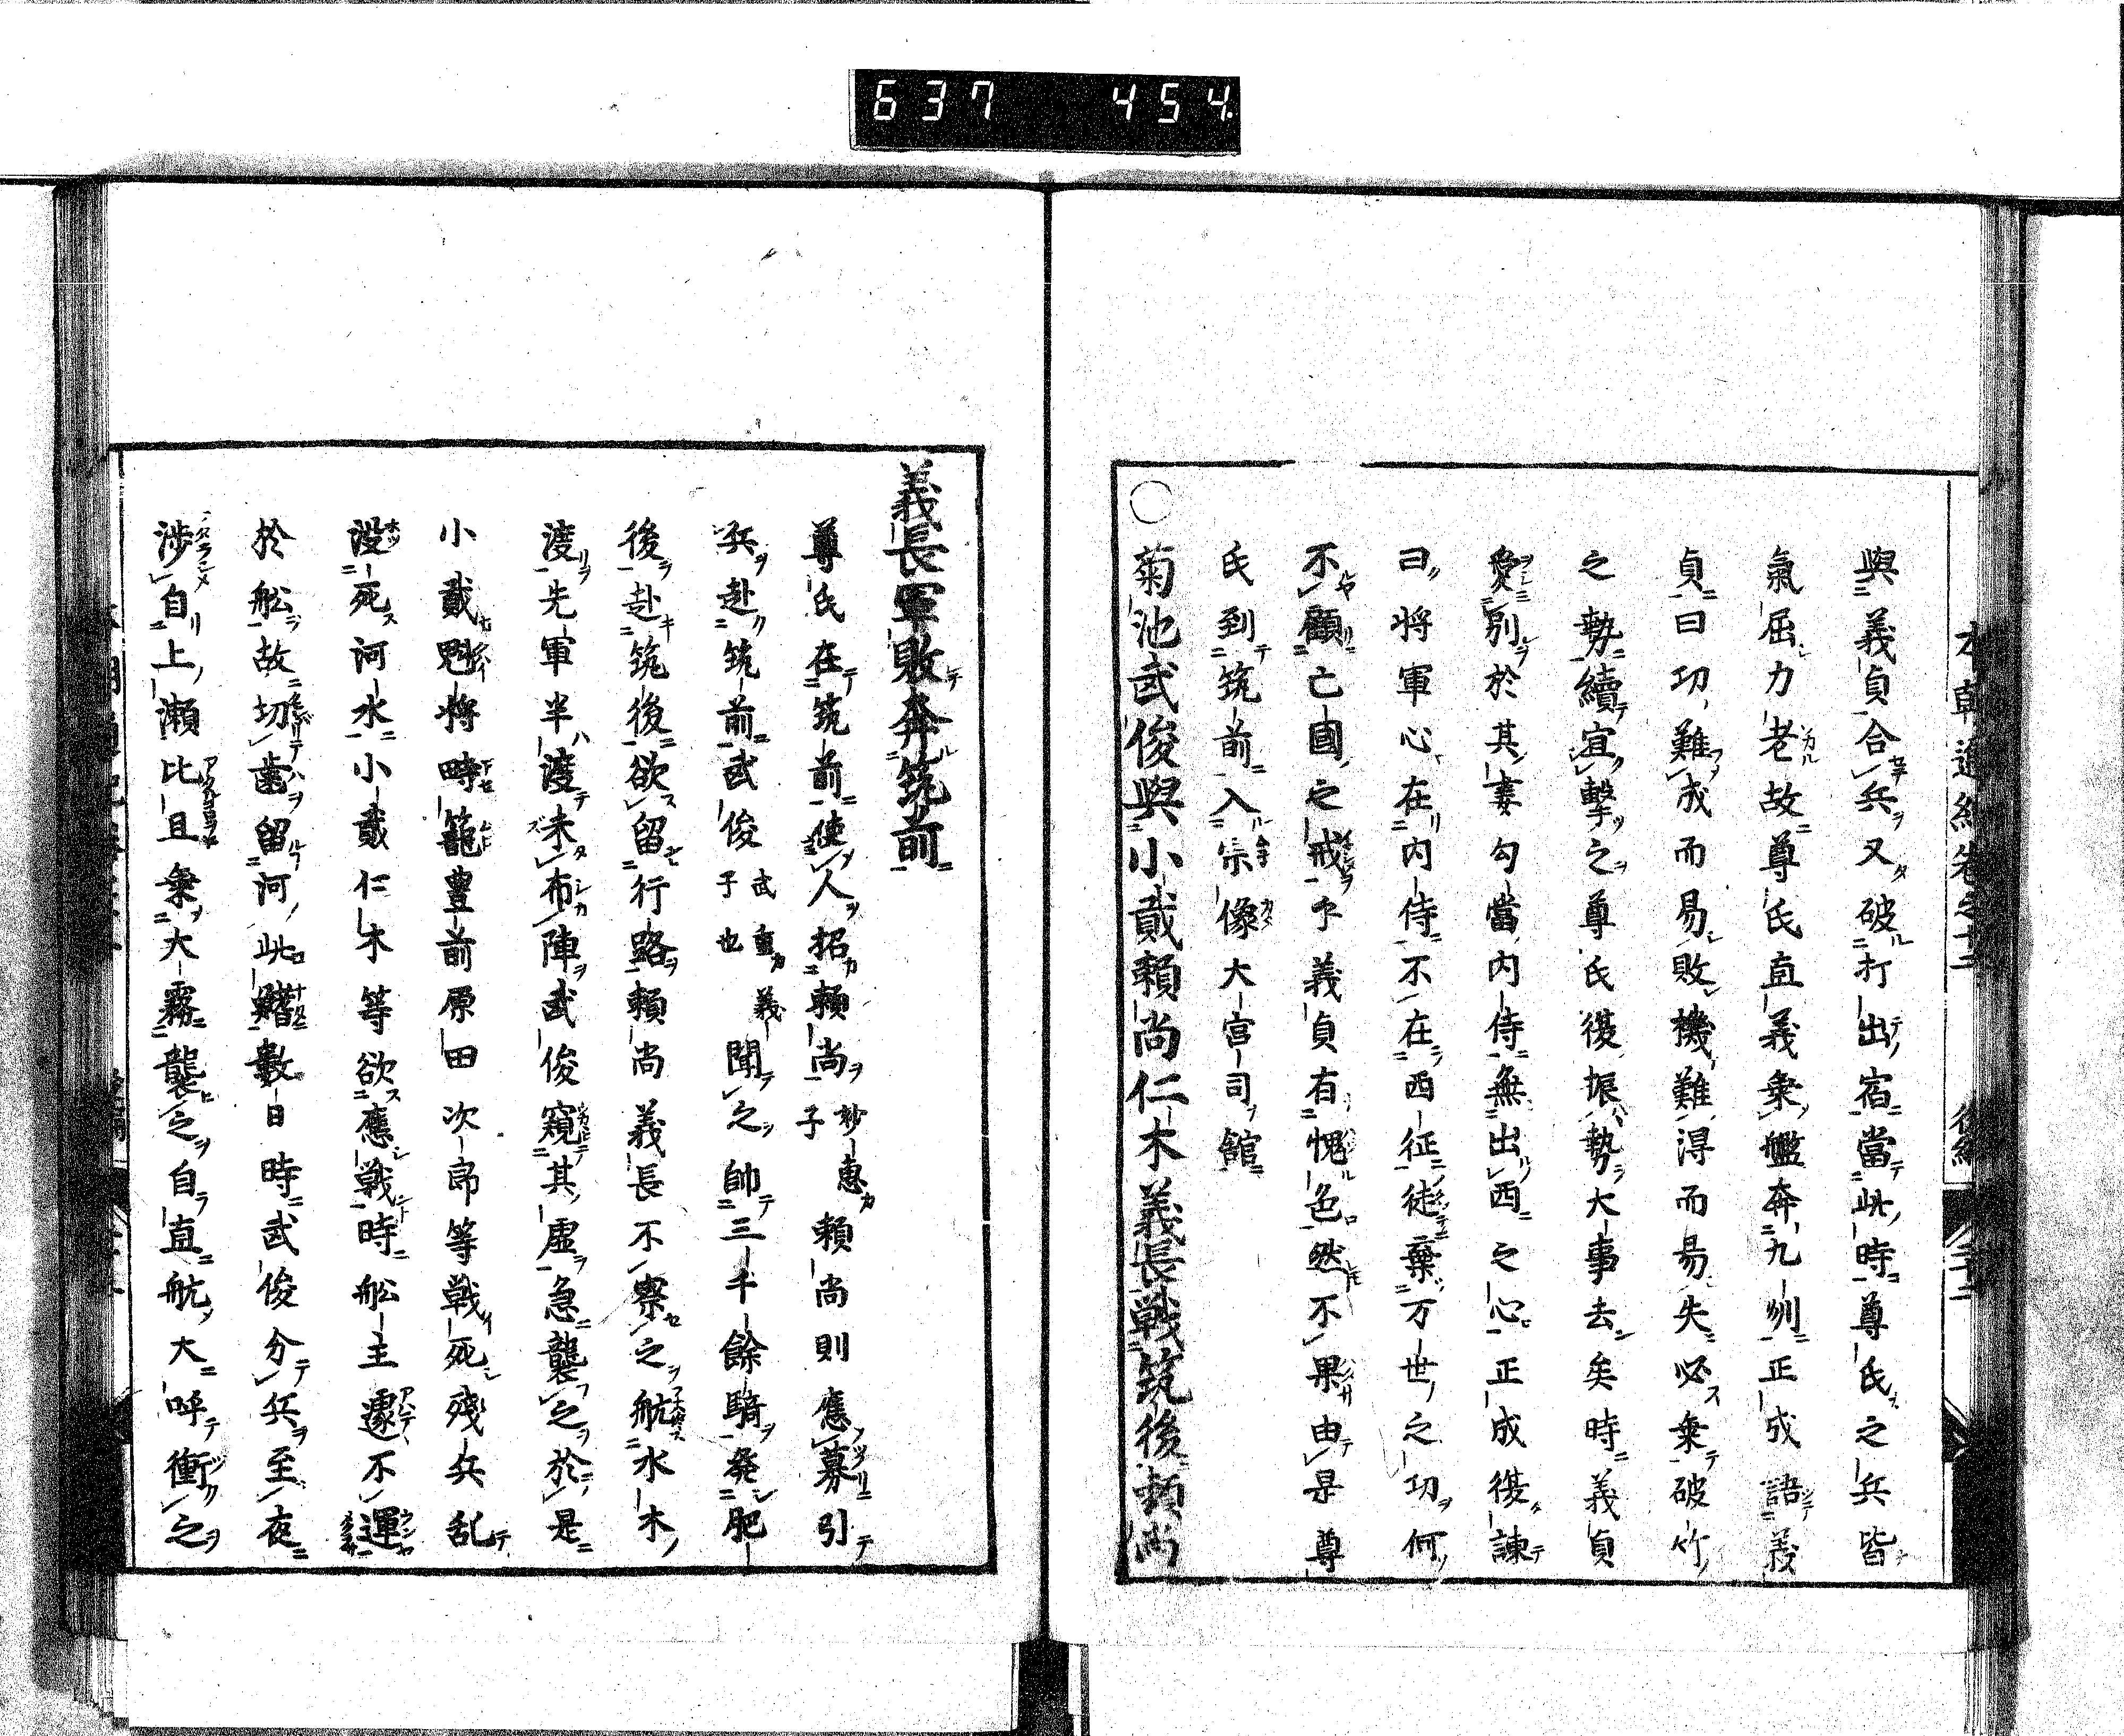 637 454
與義貞合兵又破打出宿當此時尊氏之兵皆
氣屈力老故尊氏直義乗艦奔九州正成語義
貞曰功難成而易敗機難得而易失必乗破竹
之勢續宜撃之尊氏復振勢大事去矣時義貞
愛別於其妻勾當内侍無出西之心正成復諫
曰将軍心在内侍不在西征徒棄万世之功何
不顧亡國之戒乎義貞有愧色然不果由是尊
氏到筑前入宗像大宮司館
○菊池武俊與小貳頼尚仁木義長戦筑後頼尚
義長軍敗奔筑前
尊氏在筑前使人招頼尚妙恵子頼尚則應募引
兵赴筑前武俊武重義子也聞之帥三千餘騎発肥
後赴筑後欲留行路頼尚義長不察之航水木
渡先軍半渡未布陣武俊窺其虚急襲之於是
小貳魁将時籠豊前原田次郎等戦死残兵乱
没死河水小貳仁木等欲應戦時舩主遽不運
於舩故切歯留河此蹉數日時武俊分兵至夜
渉自上瀬比且乗大霧襲之自直航大呼衝之